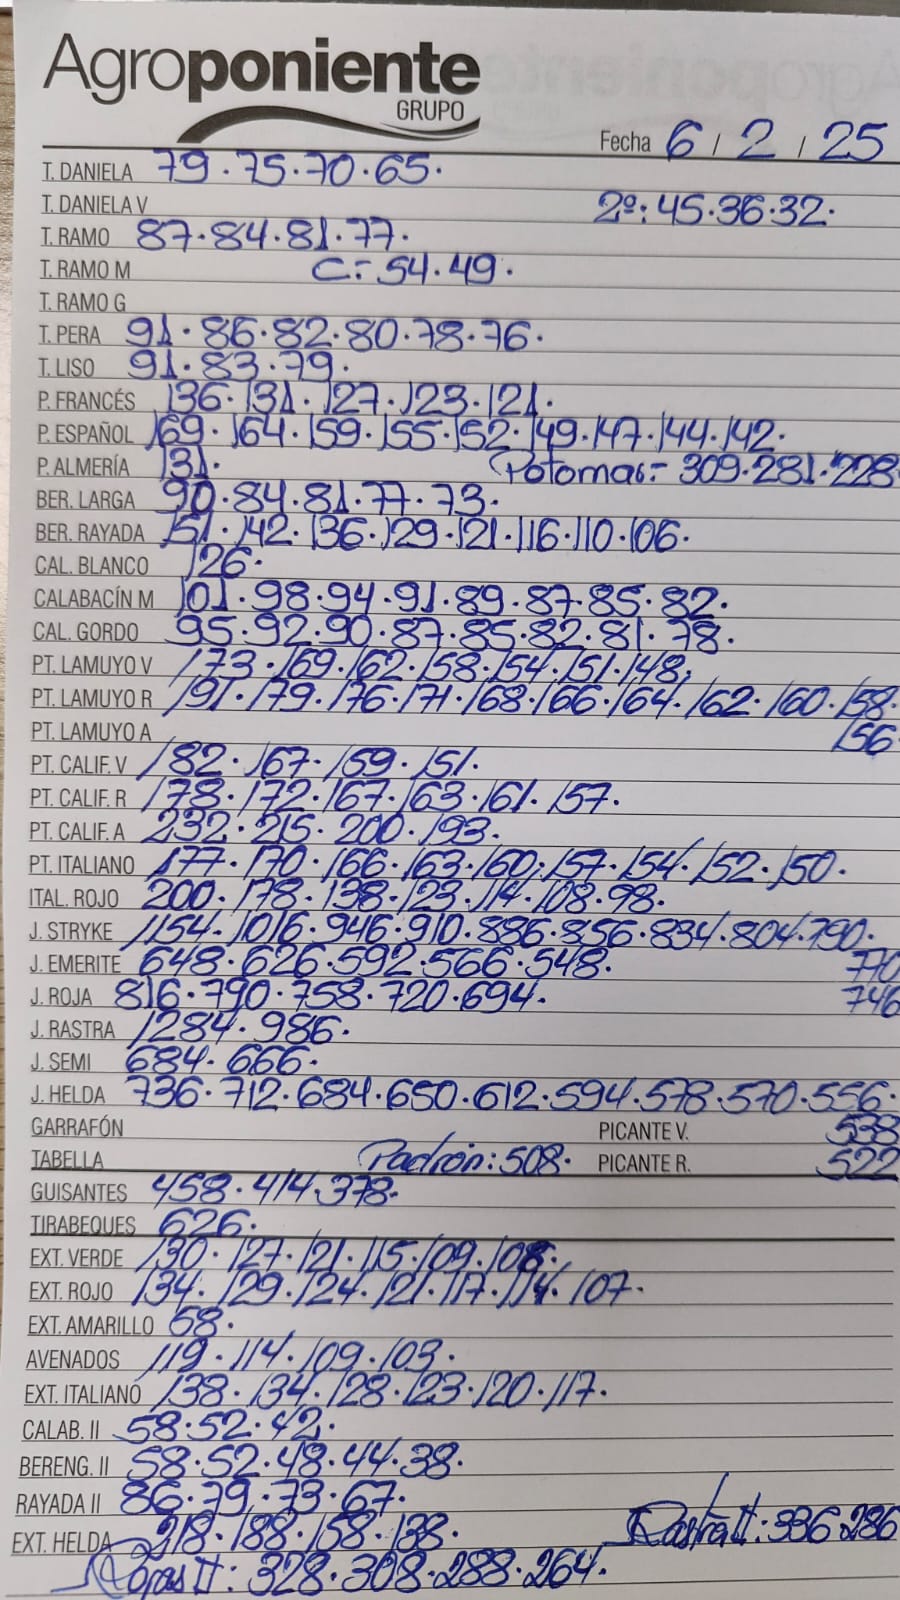 Agroponiente
GRUPO
Fecha 6 / 2 / 25
T. DANIELA 79·75·70·65·
T. DANIELA V 2º: 45·36·32·
T. RAMO 87·84·81·77·
T. RAMO M C:- 54·49·
T. RAMO G
T. PERA 91·86·82·80·78·76·
T. LISO 91·83·79·
P. FRANCÉS 136·131·127·123·121·
P. ESPAÑOL 169·164·159·155·152·149·147·144·142·
P. ALMERÍA 131· Potomac:- 309·281·228
BER. LARGA 90·84·81·77·73·
BER. RAYADA 151·142·136·129·121·116·110·106·
CAL. BLANCO 126·
CALABACÍN M 101·98·94·91·89·87·85·82·
CAL. GORDO 95·92·90·87·85·82·81·78·
PT. LAMUYO V 173·169·162·158·154·151·148·
PT. LAMUYO R 191·179·176·171·168·166·164·162·160·158·
PT. LAMUYO A 156
PT. CALIF. V 182·167·159·151·
PT. CALIF. R 178·172·167·163·161·157·
PT. CALIF. A 232·215·200·193·
PT. ITALIANO 177·170·166·163·160·157·154·152·150·
ITAL. ROJO 200·178·138·123·114·108·98·
J. STRYKE 1154·1016·946·910·886·856·834·804·790·
J. EMERITE 648·626·592·566·548· 770
J. ROJA 816·790·758·720·694· 746
J. RASTRA 1284·986·
J. SEMI 684·666·
J. HELDA 736·712·684·650·612·594·578·570·556·
GARRAFÓN PICANTE V. 538
TABELLA Padrón: 508· PICANTE R. 522
GUISANTES 458·414·378·
TIRABEQUES 626·
EXT. VERDE 130·127·121·115·109·108·
EXT. ROJO 134·129·124·121·117·114·107·
EXT. AMARILLO 68·
AVENADOS 119·114·109·103·
EXT. ITALIANO 138·134·128·123·120·117·
CALAB. II 58·52·42·
BERENG. II 58·52·48·44·38·
RAYADA II 86·79·73·67·
EXT. HELDA 218·188·158·138· Rastra II: 336·286
Rojas II: 328·308·288·264·